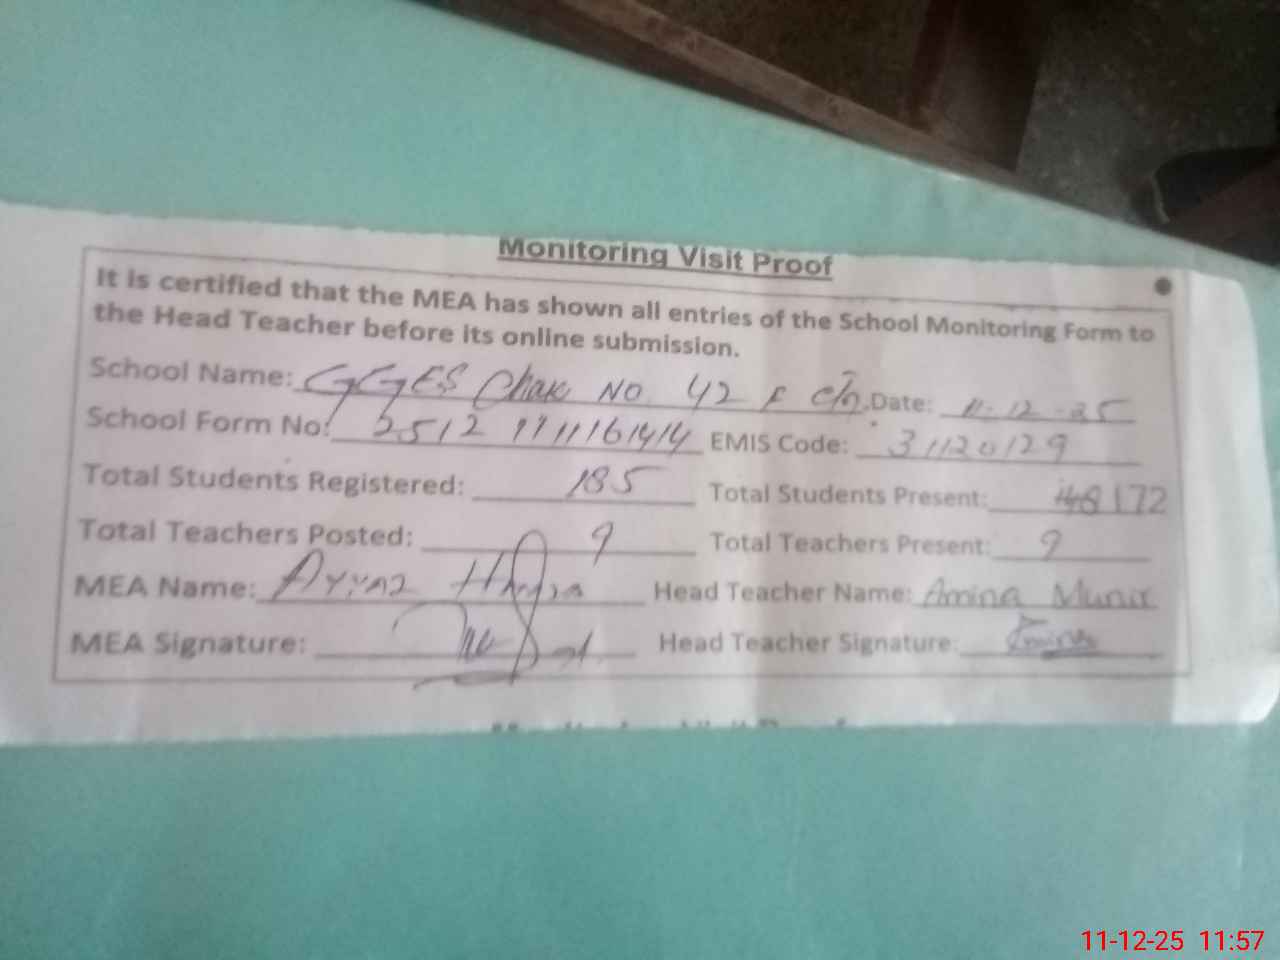 Monitoring Visit Proof
It is certified that the MEA has shown all entries of the School Monitoring Form to
the Head Teacher before its online submission.
School Name: GGES Chak NO. 42 F Date: 11-12-25
School Form No: EMIS Code: 31120129
Total Students Registered: 185 Total Students Present: 172
Total Teachers Posted: 9 Total Teachers Present: 9
MEA Name: Ayyaz Head Teacher Name: Amina Munir
MEA Signature: Head Teacher Signature: Amina
11-12-25 11:57